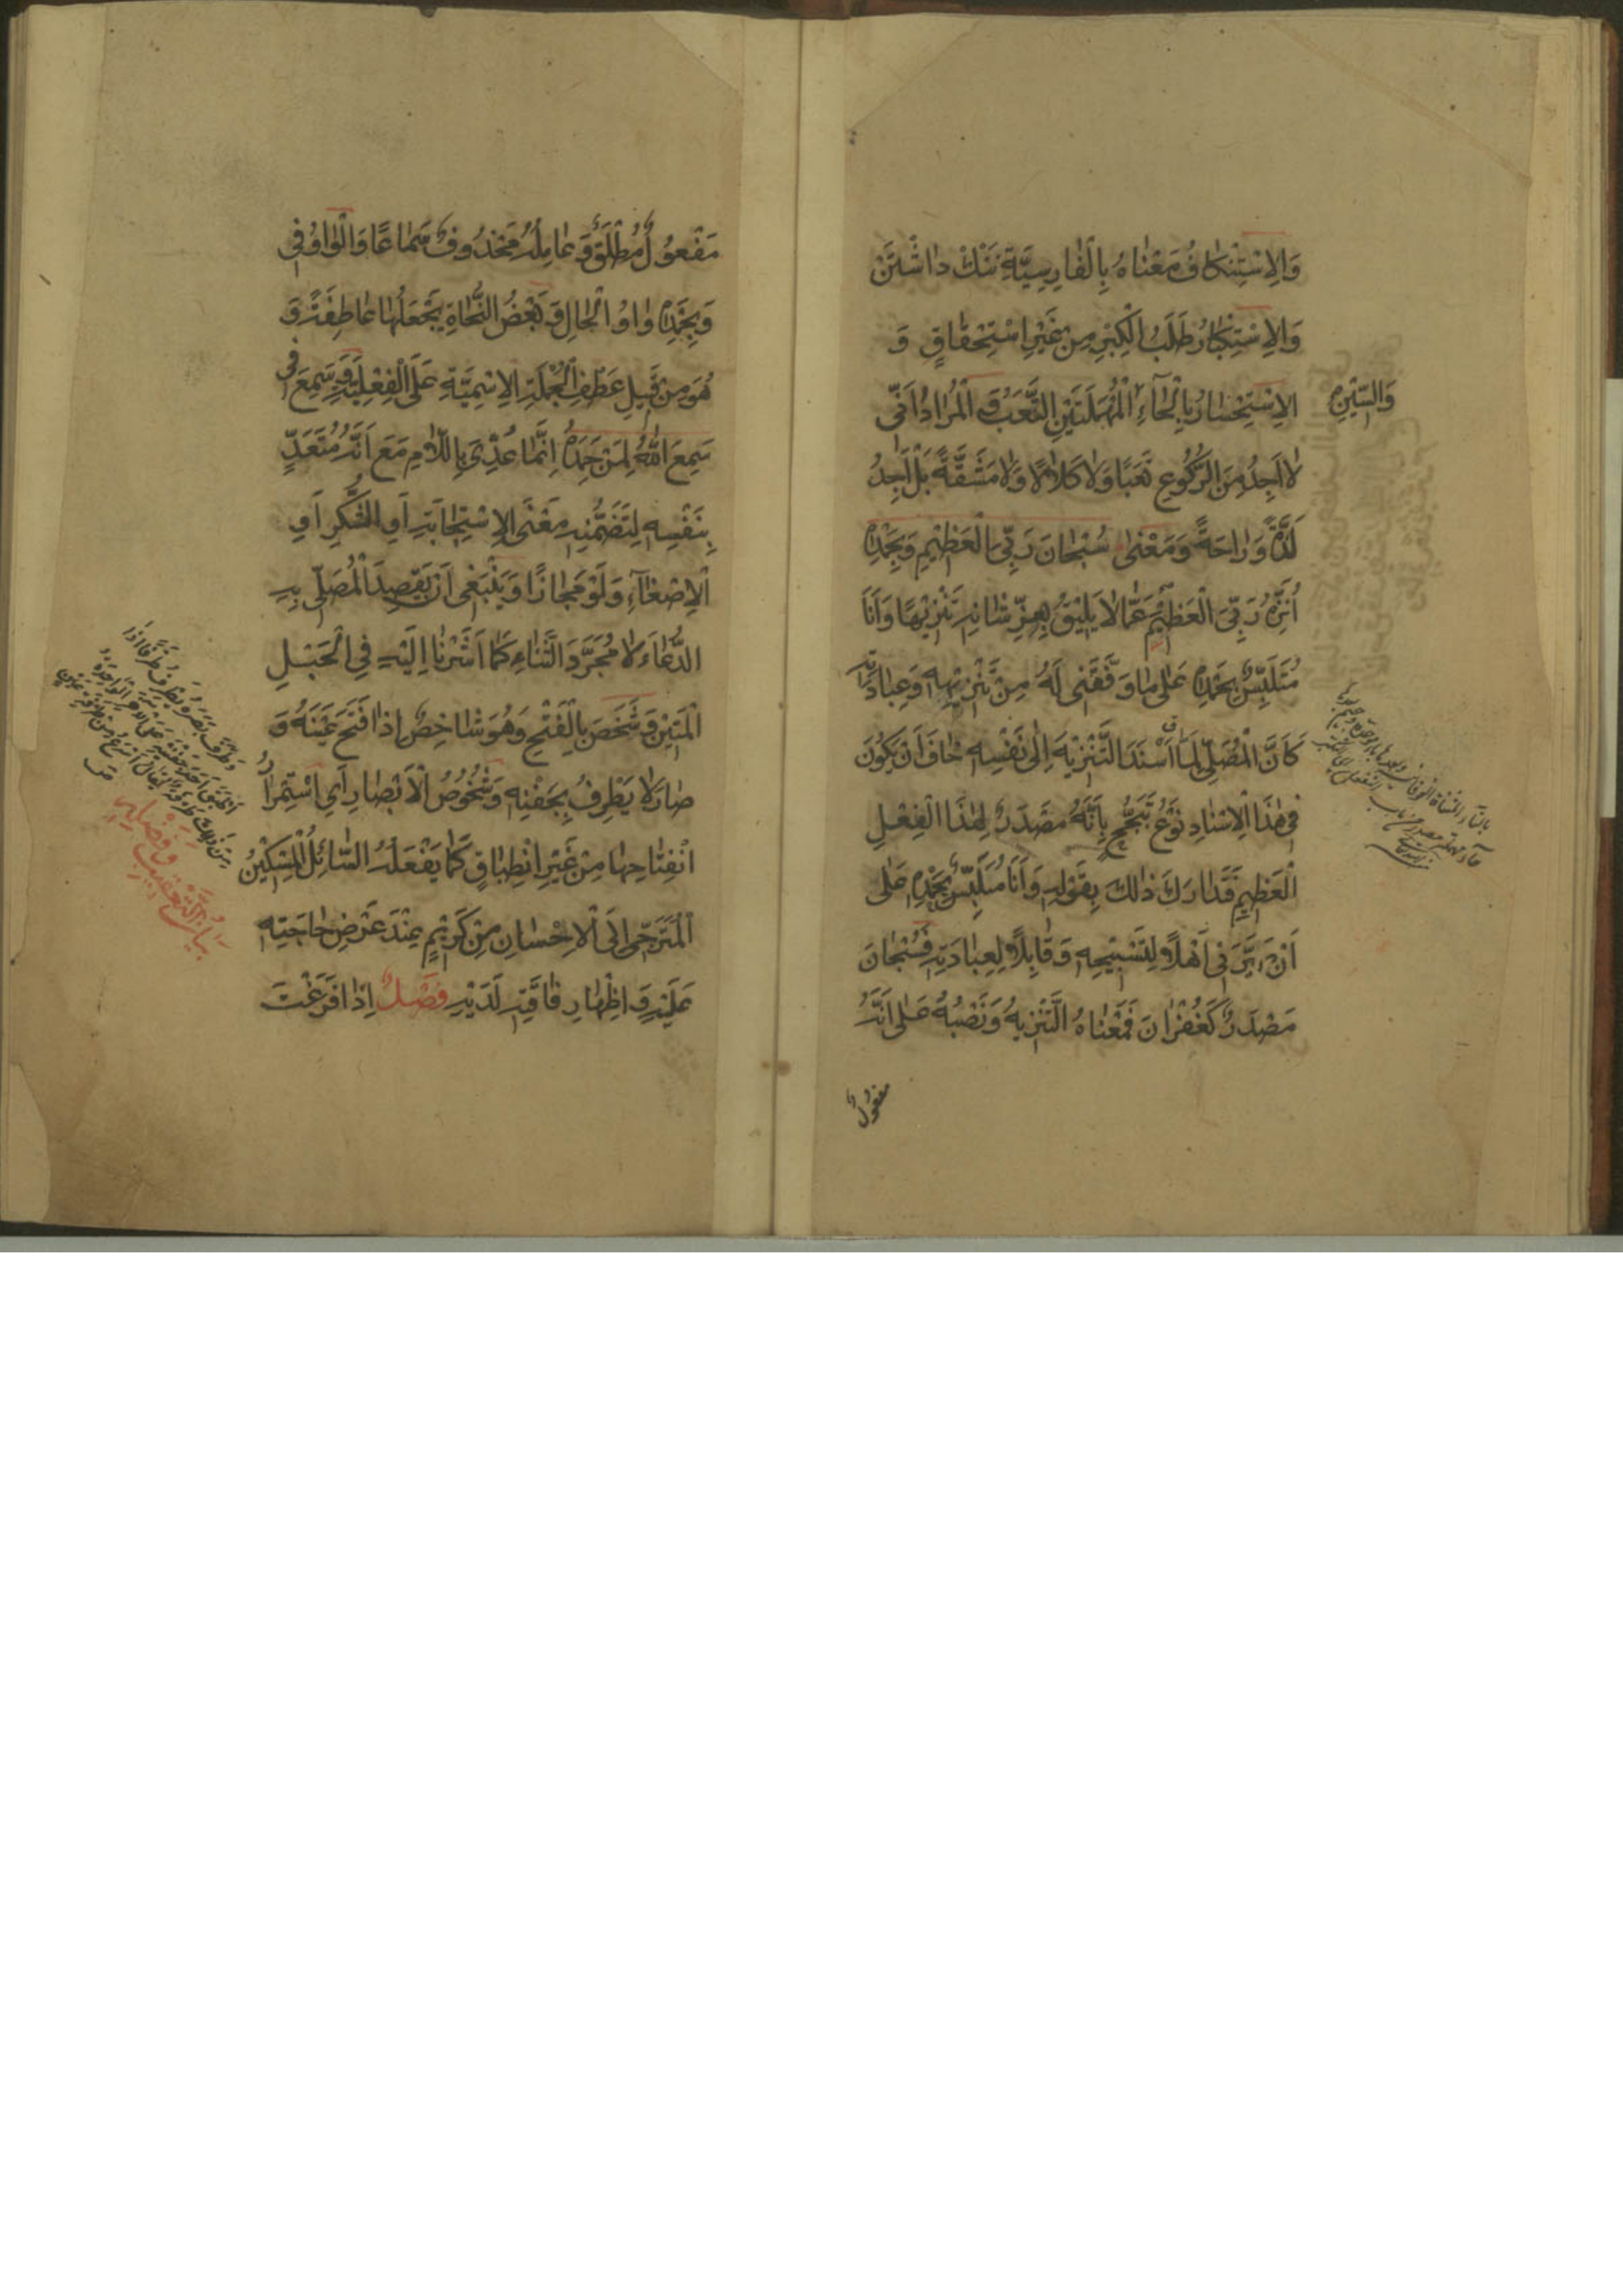 وَالِاسْتِنْكَافُ مَعْنَاهُ بِالْفَارِسِيَّةِ نَنْكْ دَاشْتَنْ
وَالِاسْتِكْبَارُ طَلَبُ الْكِبْرِ مِنْ غَيْرِ اسْتِحْقَاقٍ وَ
الِاسْتِحْسَارُ بِالْحَآءِ الْمُهْمَلَتَيْنِ التَّعَبُ وَ الْمُرَادُ اَنِّي
وَالسّٖينِ
لَا اَجِدُ مِنَ الرُّكُوعِ تَعَبًا وَلَا كَلَالًا وَلَا مَشَقَّةً بَلْ اَجِدُ
لَذَّةً وَرَاحَةً وَمَعْنٰى سُبْحَانَ رَبِّيَ الْعَظٖيمِ وَبِحَمْدِهٖ
اُنَزِّهُ رَبِّيَ الْعَظٖيمَ عَمَّا لَا يَلٖيقُ بِعِزِّ شَانِهٖ تَنْزٖيهًا وَاَنَا
مُتَلَبِّسٌ بِحَمْدِهٖ عَلٰى مَا وَفَّقَنٖى لَهُ مِنْ تَنْزٖيهِهٖ وَعِبَادَتِهٖ
كَاَنَّ الْمُصَلِّيَ لَمَّا اَسْنَدَ التَّنْزٖيهَ اِلٰى نَفْسِهٖ خَافَ اَنْ يَكُونَ
فٖى هٰذَا الْاِسْنَادِ نَوْعُ تَبَجُّحٍ بِاَنَّهُ مَصْدَرٌ لِهٰذَا الْفِعْلِ
الْعَظٖيمِ فَتَدَارَكَ ذٰلِكَ بِقَوْلِهٖ وَاَنَا مُتَلَبِّسٌ بِحَمْدِهٖ عَلٰى
اَنْ صَيَّرَنٖى اَهْلًا لِتَسْبٖيحِهٖ وَقَابِلًا لِعِبَادَتِهٖ فَسُبْحَانَ
مَصْدَرٌ كَغُفْرَانَ فَمَعْنَاهُ التَّنْزٖيهُ وَنَصْبُهُ عَلٰى اَنَّهُ
مفعولٌ
مَفْعُولٌ مُطْلَقٌ وَعَامِلُهُ مَحْذُوفٌ سَمَاعًا وَالْوَاوُ فٖى
وَبِحَمْدِهٖ وَاوُ الْحَالِ وَبَعْضُ النُّحَاةِ يَجْعَلُهَا عَاطِفَةً وَ
هُوَ مِنْ قَبٖيلِ عَطْفِ الْجُمْلَةِ الِاسْمِيَّةِ عَلَى الْفِعْلِيَّةِ وَسَمِعَ فٖى
سَمِعَ اللّٰهُ لِمَنْ حَمِدَهُ اِنَّمَا عُدِّيَ بِاللَّامِ مَعَ اَنَّهُ مُتَعَدٍّ
بِنَفْسِهٖ لِتَضَمُّنِهٖ مَعْنَى الِاسْتِجَابَةِ اَوِ الشُّكْرِ اَوِ
الْاِصْغَآءِ وَلَوْ مَجَازًا وَيَنْبَغٖى اَنْ يَقْصِدَ الْمُصَلّٖى بِهٖ
الدُّعَاءَ لَا مُجَرَّدَ الثَّنَاءِ كَمَا اَشَرْنَا اِلَيْهِ فِي الْحَبْلِ
الْمَتٖينِ وَشَخَصَ بِالْفَتْحِ وَهُوَ شَاخِصٌ اِذَا فَتَحَ عَيْنَهُ وَ
صَارَ لَا يَطْرِفُ بِجَفْنِهٖ وَشُخُوصُ الْاَبْصَارِ اَيِ اسْتِمْرَارُ
انْفِتَاحِهَا مِنْ غَيْرِ انْطِبَاقٍ كَمَا يَفْعَلُهُ السَّائِلُ الْمِسْكٖينُ
الْمُتَرَجّٖى اِلَى الْاِحْسَانِ مِنْ كَرٖيمٍ عِنْدَ عَرْضِ حَاجَتِهٖ
عَلَيْهِ وَاِظْهَارِ فَاقَتِهٖ لَدَيْهِ فَصْلٌ اِذَا فَرَغْتَ
وَطَرَفَ بَصَرَهُ يَطْرِفُ طَرْفًا اِذَا
بَيَانُ التَّعْقٖيبِ وَفَضْلِهٖ